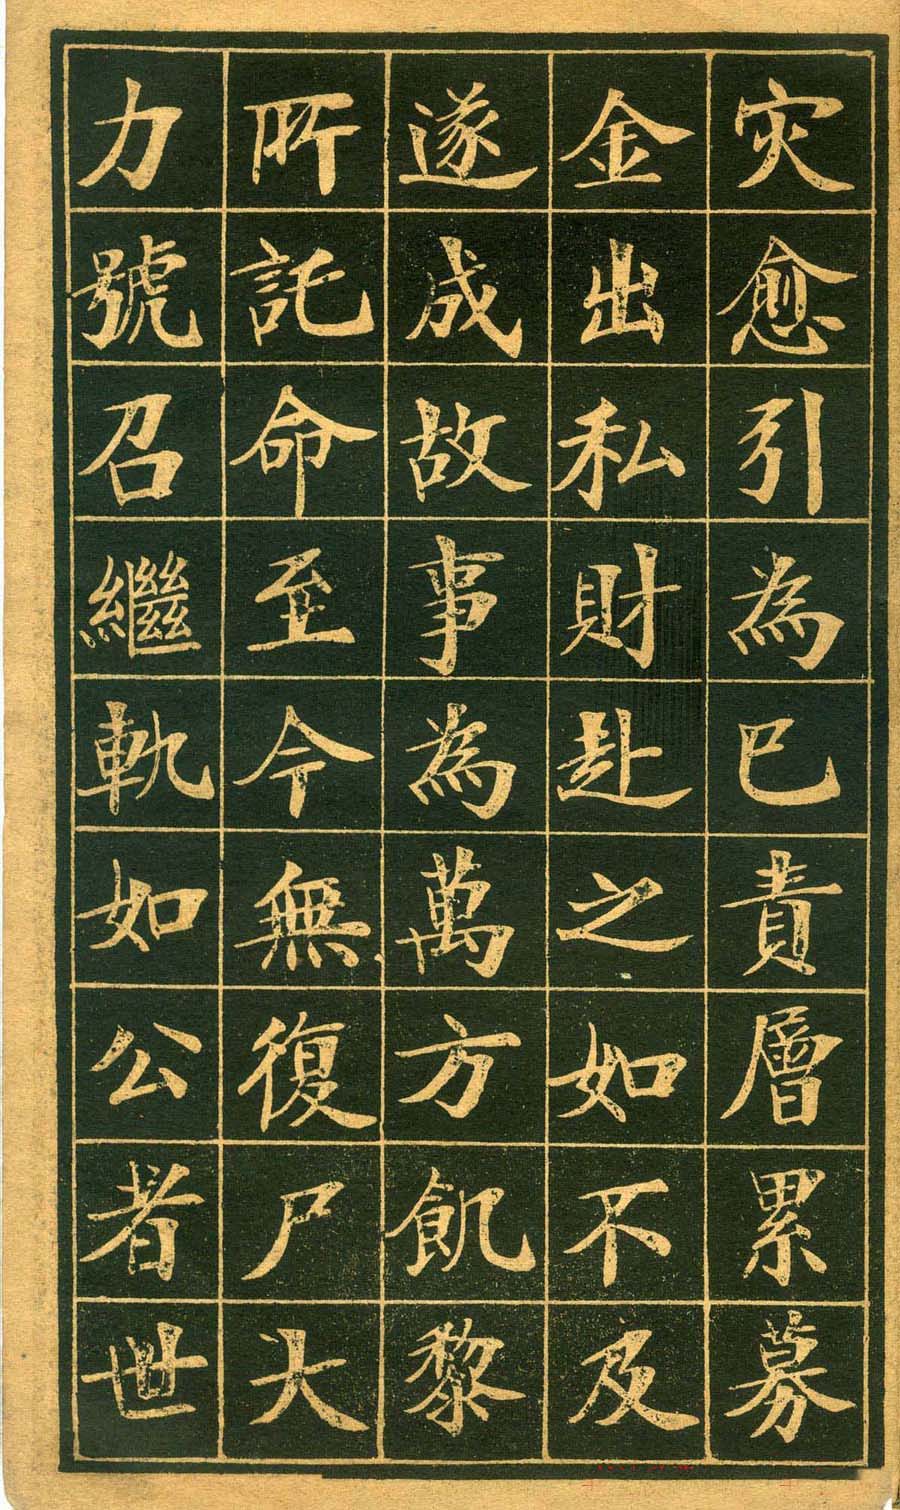 灾愈引為已責層累募
金出私財赴之如不及
遂成故事為萬方飢黎
所託命至今無復尸大
力號召繼軌如公者世